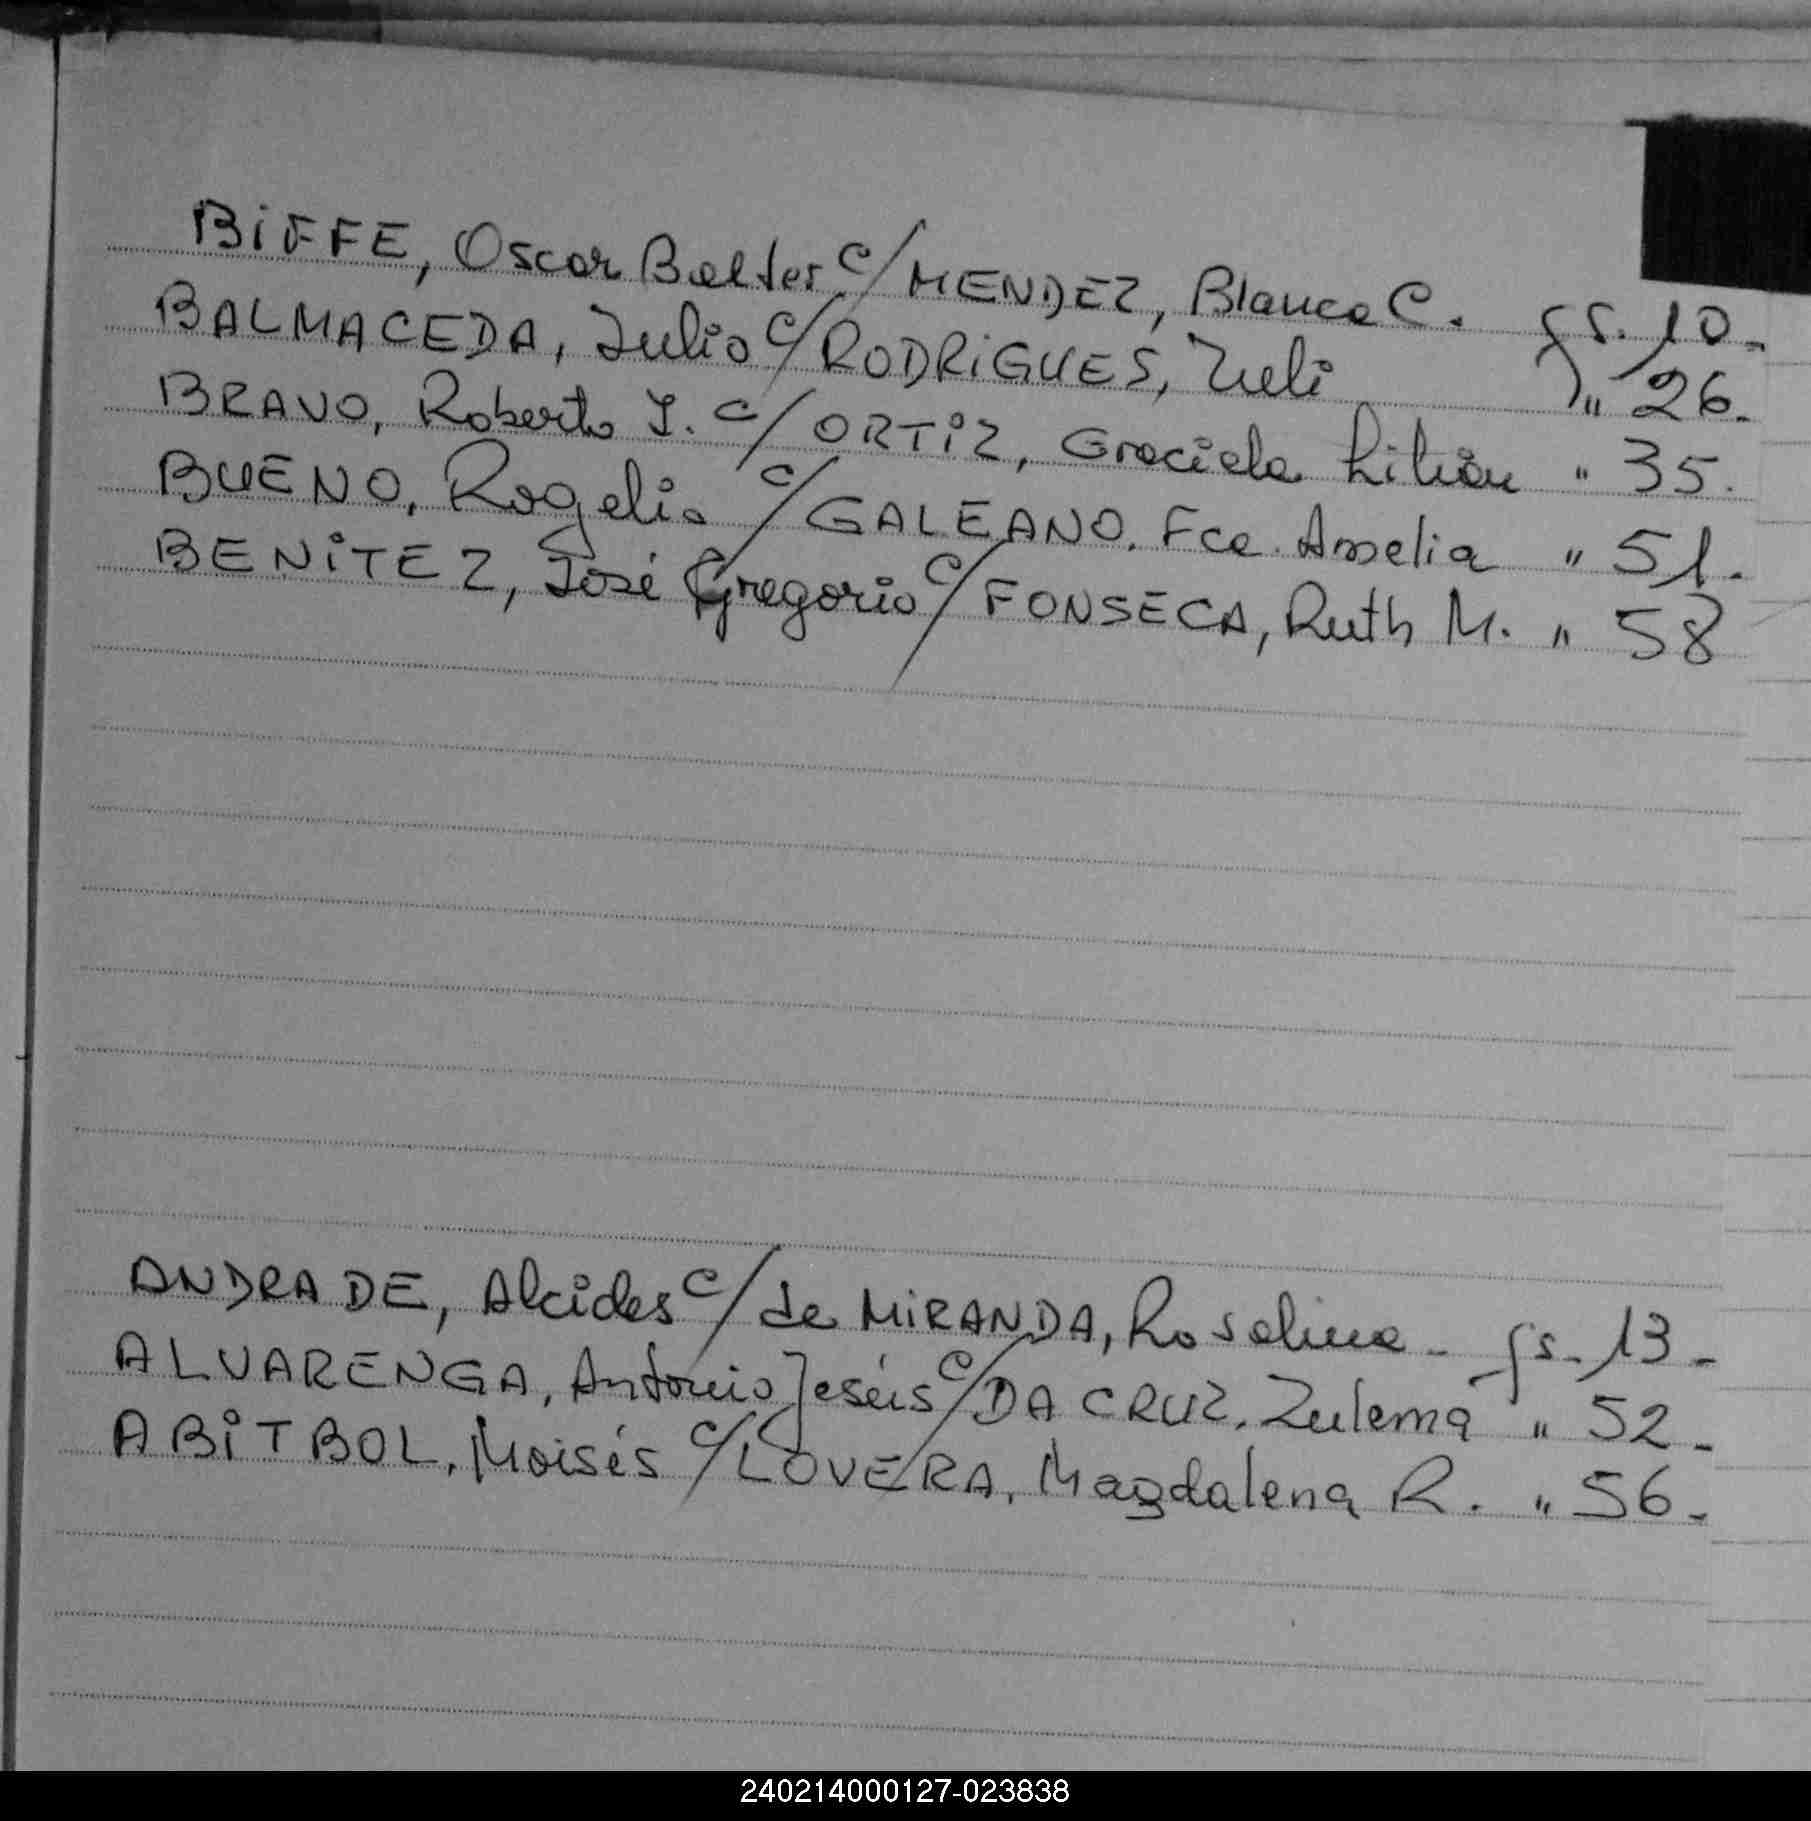 BIFFE, Oscar Balter c/ MENDEZ, Blanca C. fs. 10.
BALMACEDA, Julio c/ RODRIGUES, Zuli " 26.
BRAVO, Roberto I. c/ ORTIZ, Graciela Lilián " 35.
BUENO, Rogelio c/ GALEANO, Fca. Amelia " 51.
BENITEZ, José Gregorio c/ FONSECA, Ruth M. " 58
ANDRADE, Alcides c/ de MIRANDA, Rosalina - fs. 13 -
ALVARENGA, Antonio Jesús c/ DA CRUZ, Zulema " 52 -
ABITBOL, Moisés c/ LOVERA, Magdalena R. " 56 -
240214000127-023838